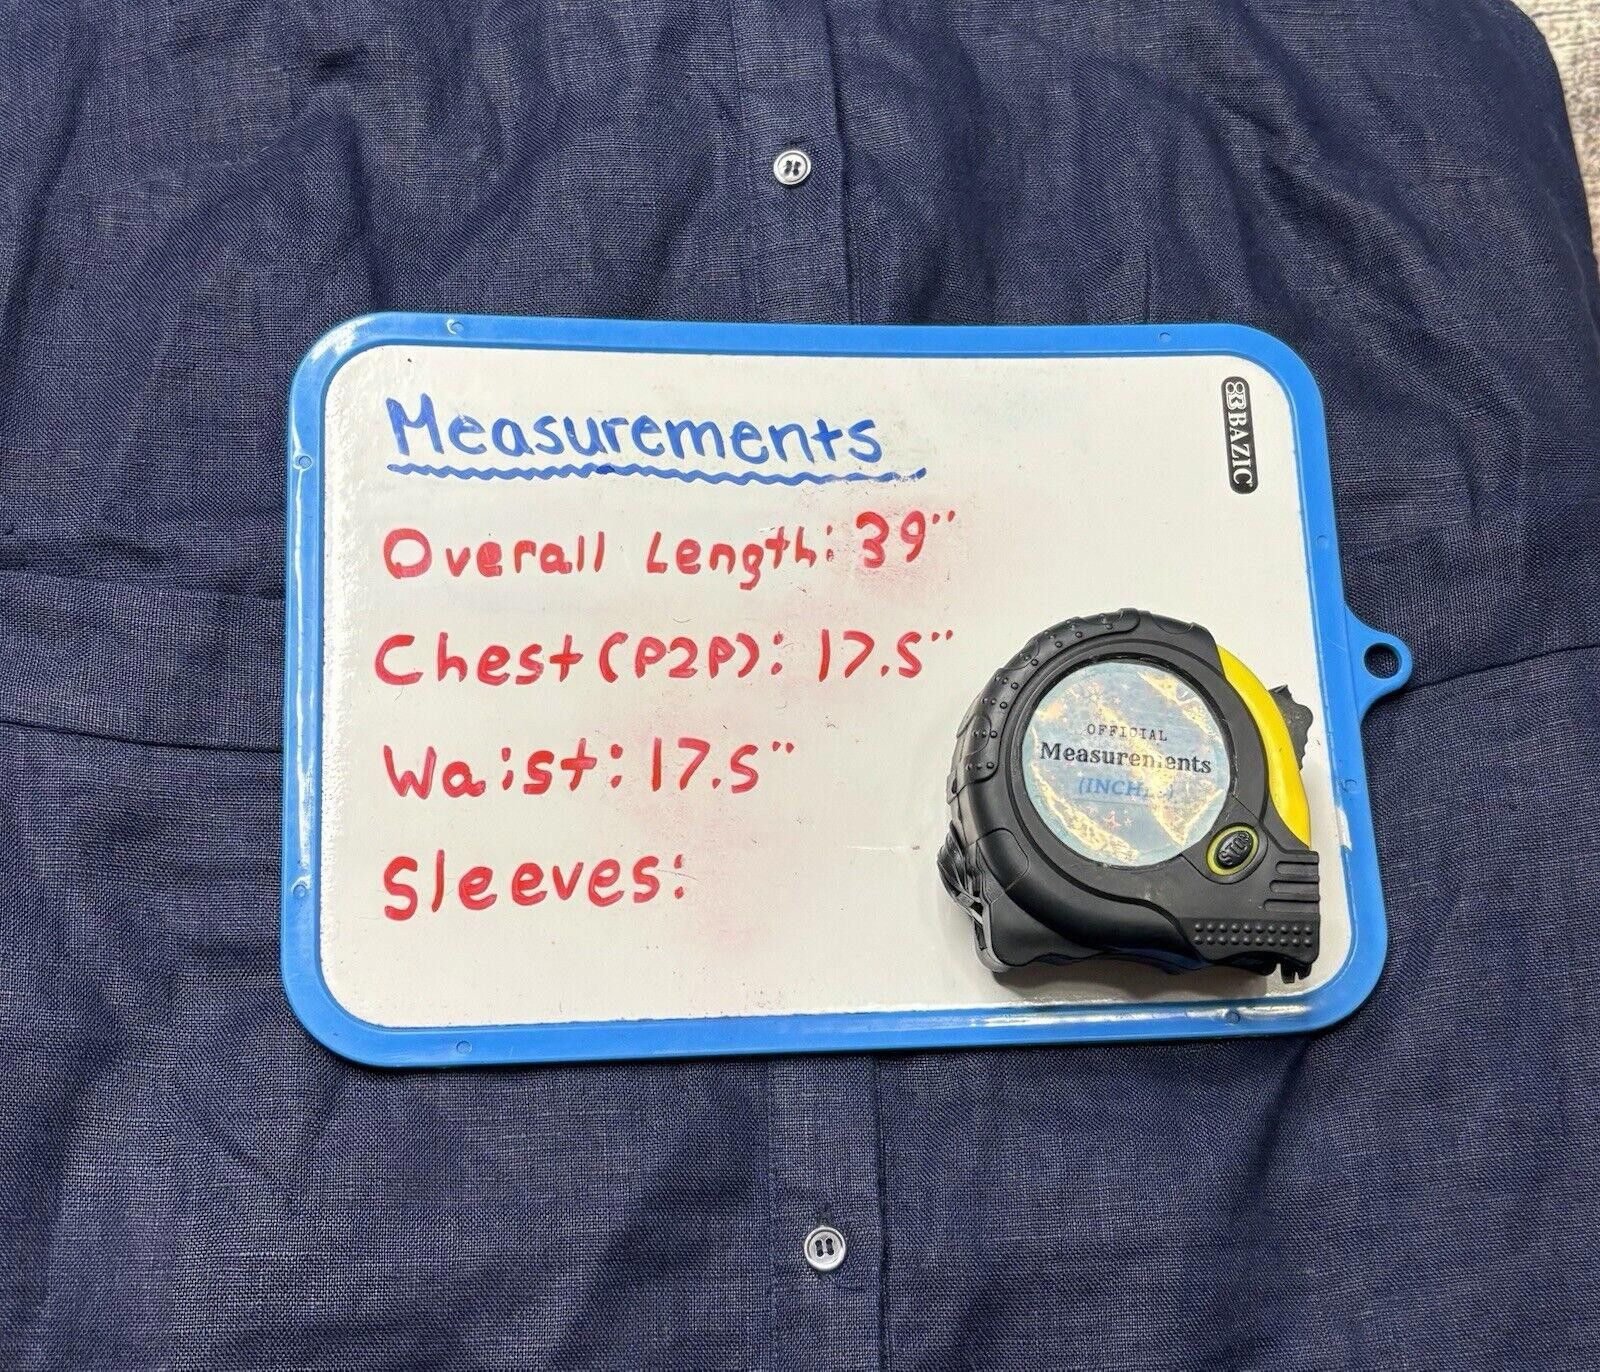 Measurements
BAZIC
Overall Length: 39"
Chest (P2P): 17.5"
Waist: 17.5"
Sleeves:
OFFICIAL
Measurements